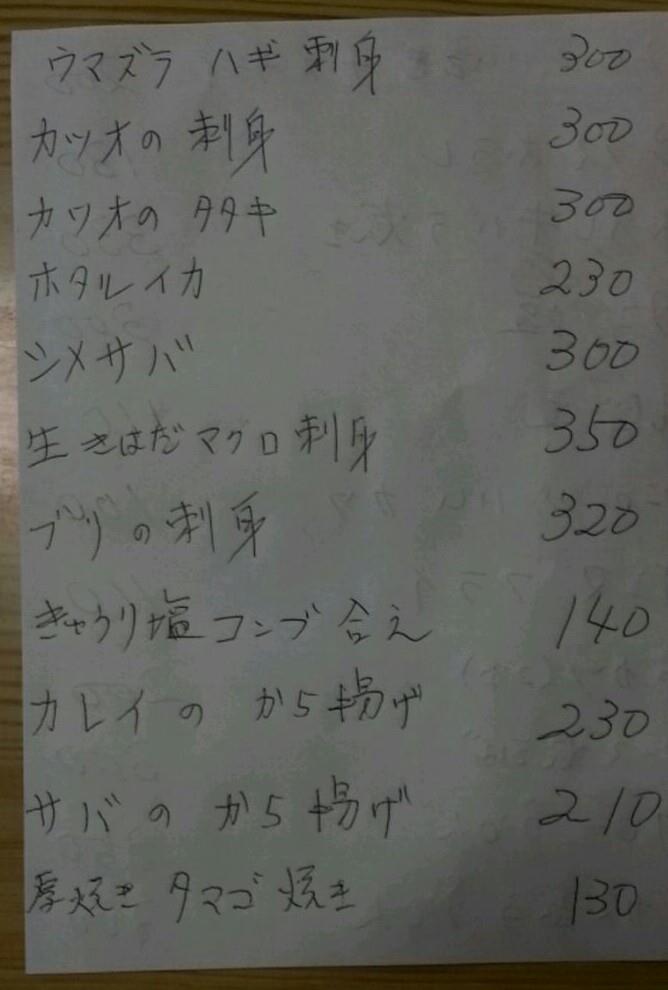 ウマズラ ハギ 刺身 300
カツオの 刺身 300
カツオの タタキ 300
ホタルイカ 230
シメサバ 300
生きはだマグロ刺身 350
ブリの刺身 320
きゅうり塩コンブ合え 140
カレイの から揚げ 230
サバの から揚げ 210
厚焼き タマゴ焼き 130